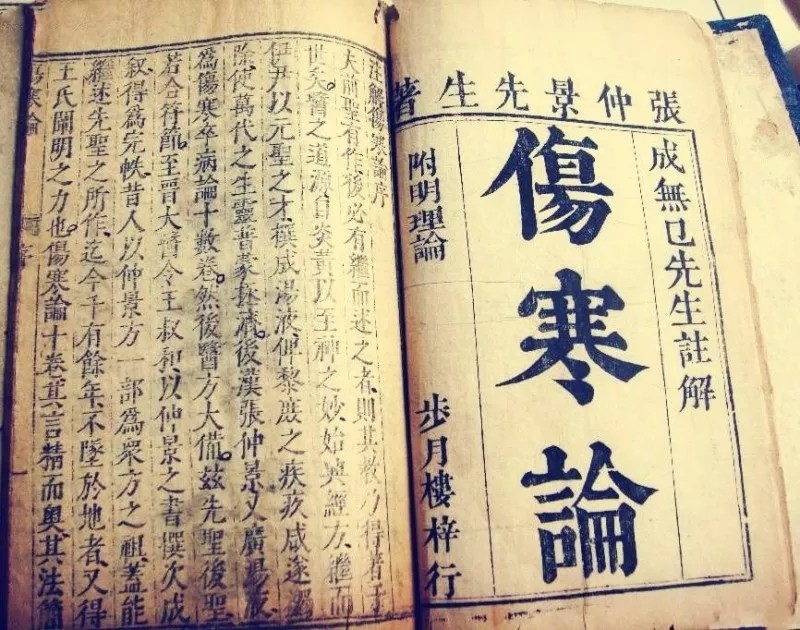 張仲景先生著
成無已先生註解
傷寒論
附明理論
步月樓梓行
注解傷寒論序
夫前聖有作後必有繼而述之者則其教乃得著于
世矣。醫之道源自炎黃以至神之妙始興經方繼而
伊尹以元聖之才撰成湯液俾黎庶之疾疢咸遂蠲
除使萬代之生靈普蒙拯濟後漢張仲景又廣湯液
爲傷寒卒病論十數卷。然後醫方大備。茲先聖後聖
若合符節。至晉大醫令王叔和以仲景之書撰次成
敘得爲完帙昔人以仲景方一部爲衆方之祖蓋能
繼述先聖之所作迄今千有餘年不墜於地者又得
王氏闡明之力也。傷寒論十卷其言精而奧其法簡
傷寒論 序